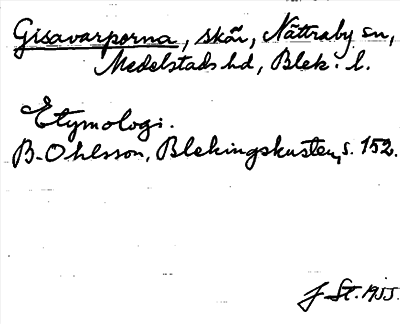 Gisavarporna, skär, Nättraby sn,
Medelstads hd, Blek. l.
Etymologi.
B. Ohlsson, Blekingskusten, s. 152.
J. St. 1955.